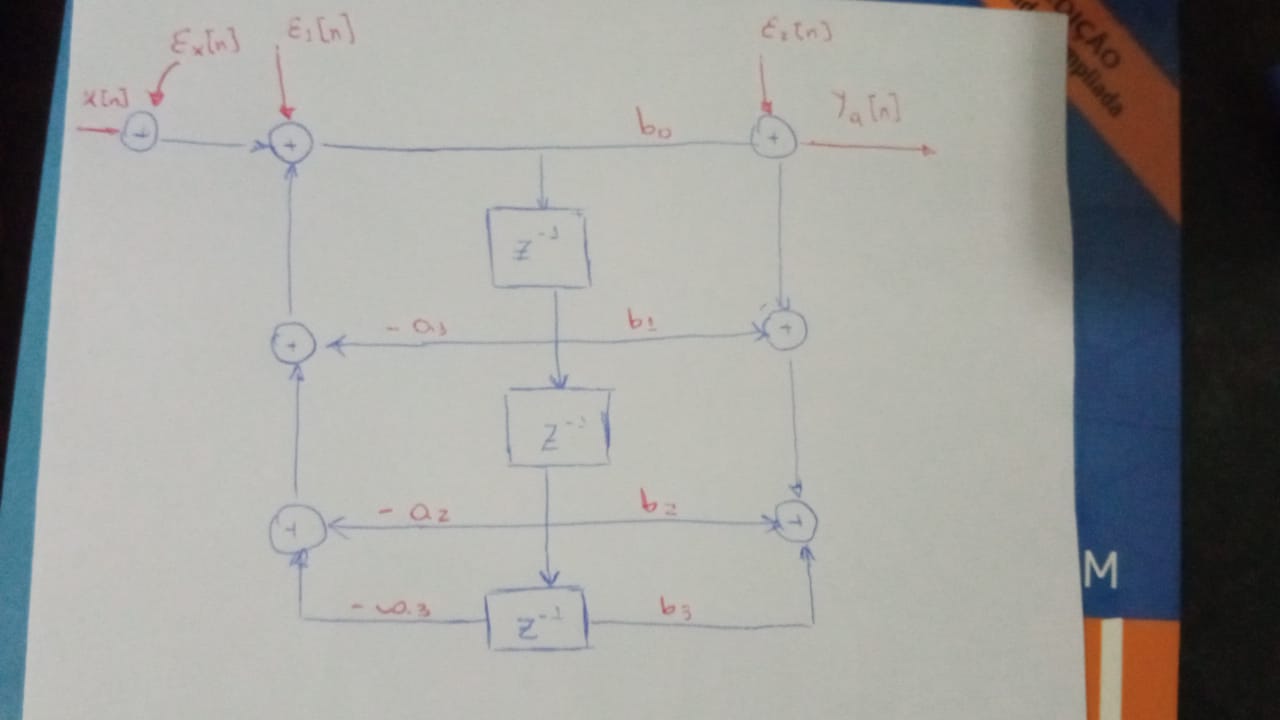 εx[n]
ε1[n]
ε2[n]
x[n]
+
+
b0
+
ya[n]
z^-1
+
- a1
b1
+
z^-1
+
- a2
b2
+
- a3
z^-1
b3
DIÇÃO
mpliada
M